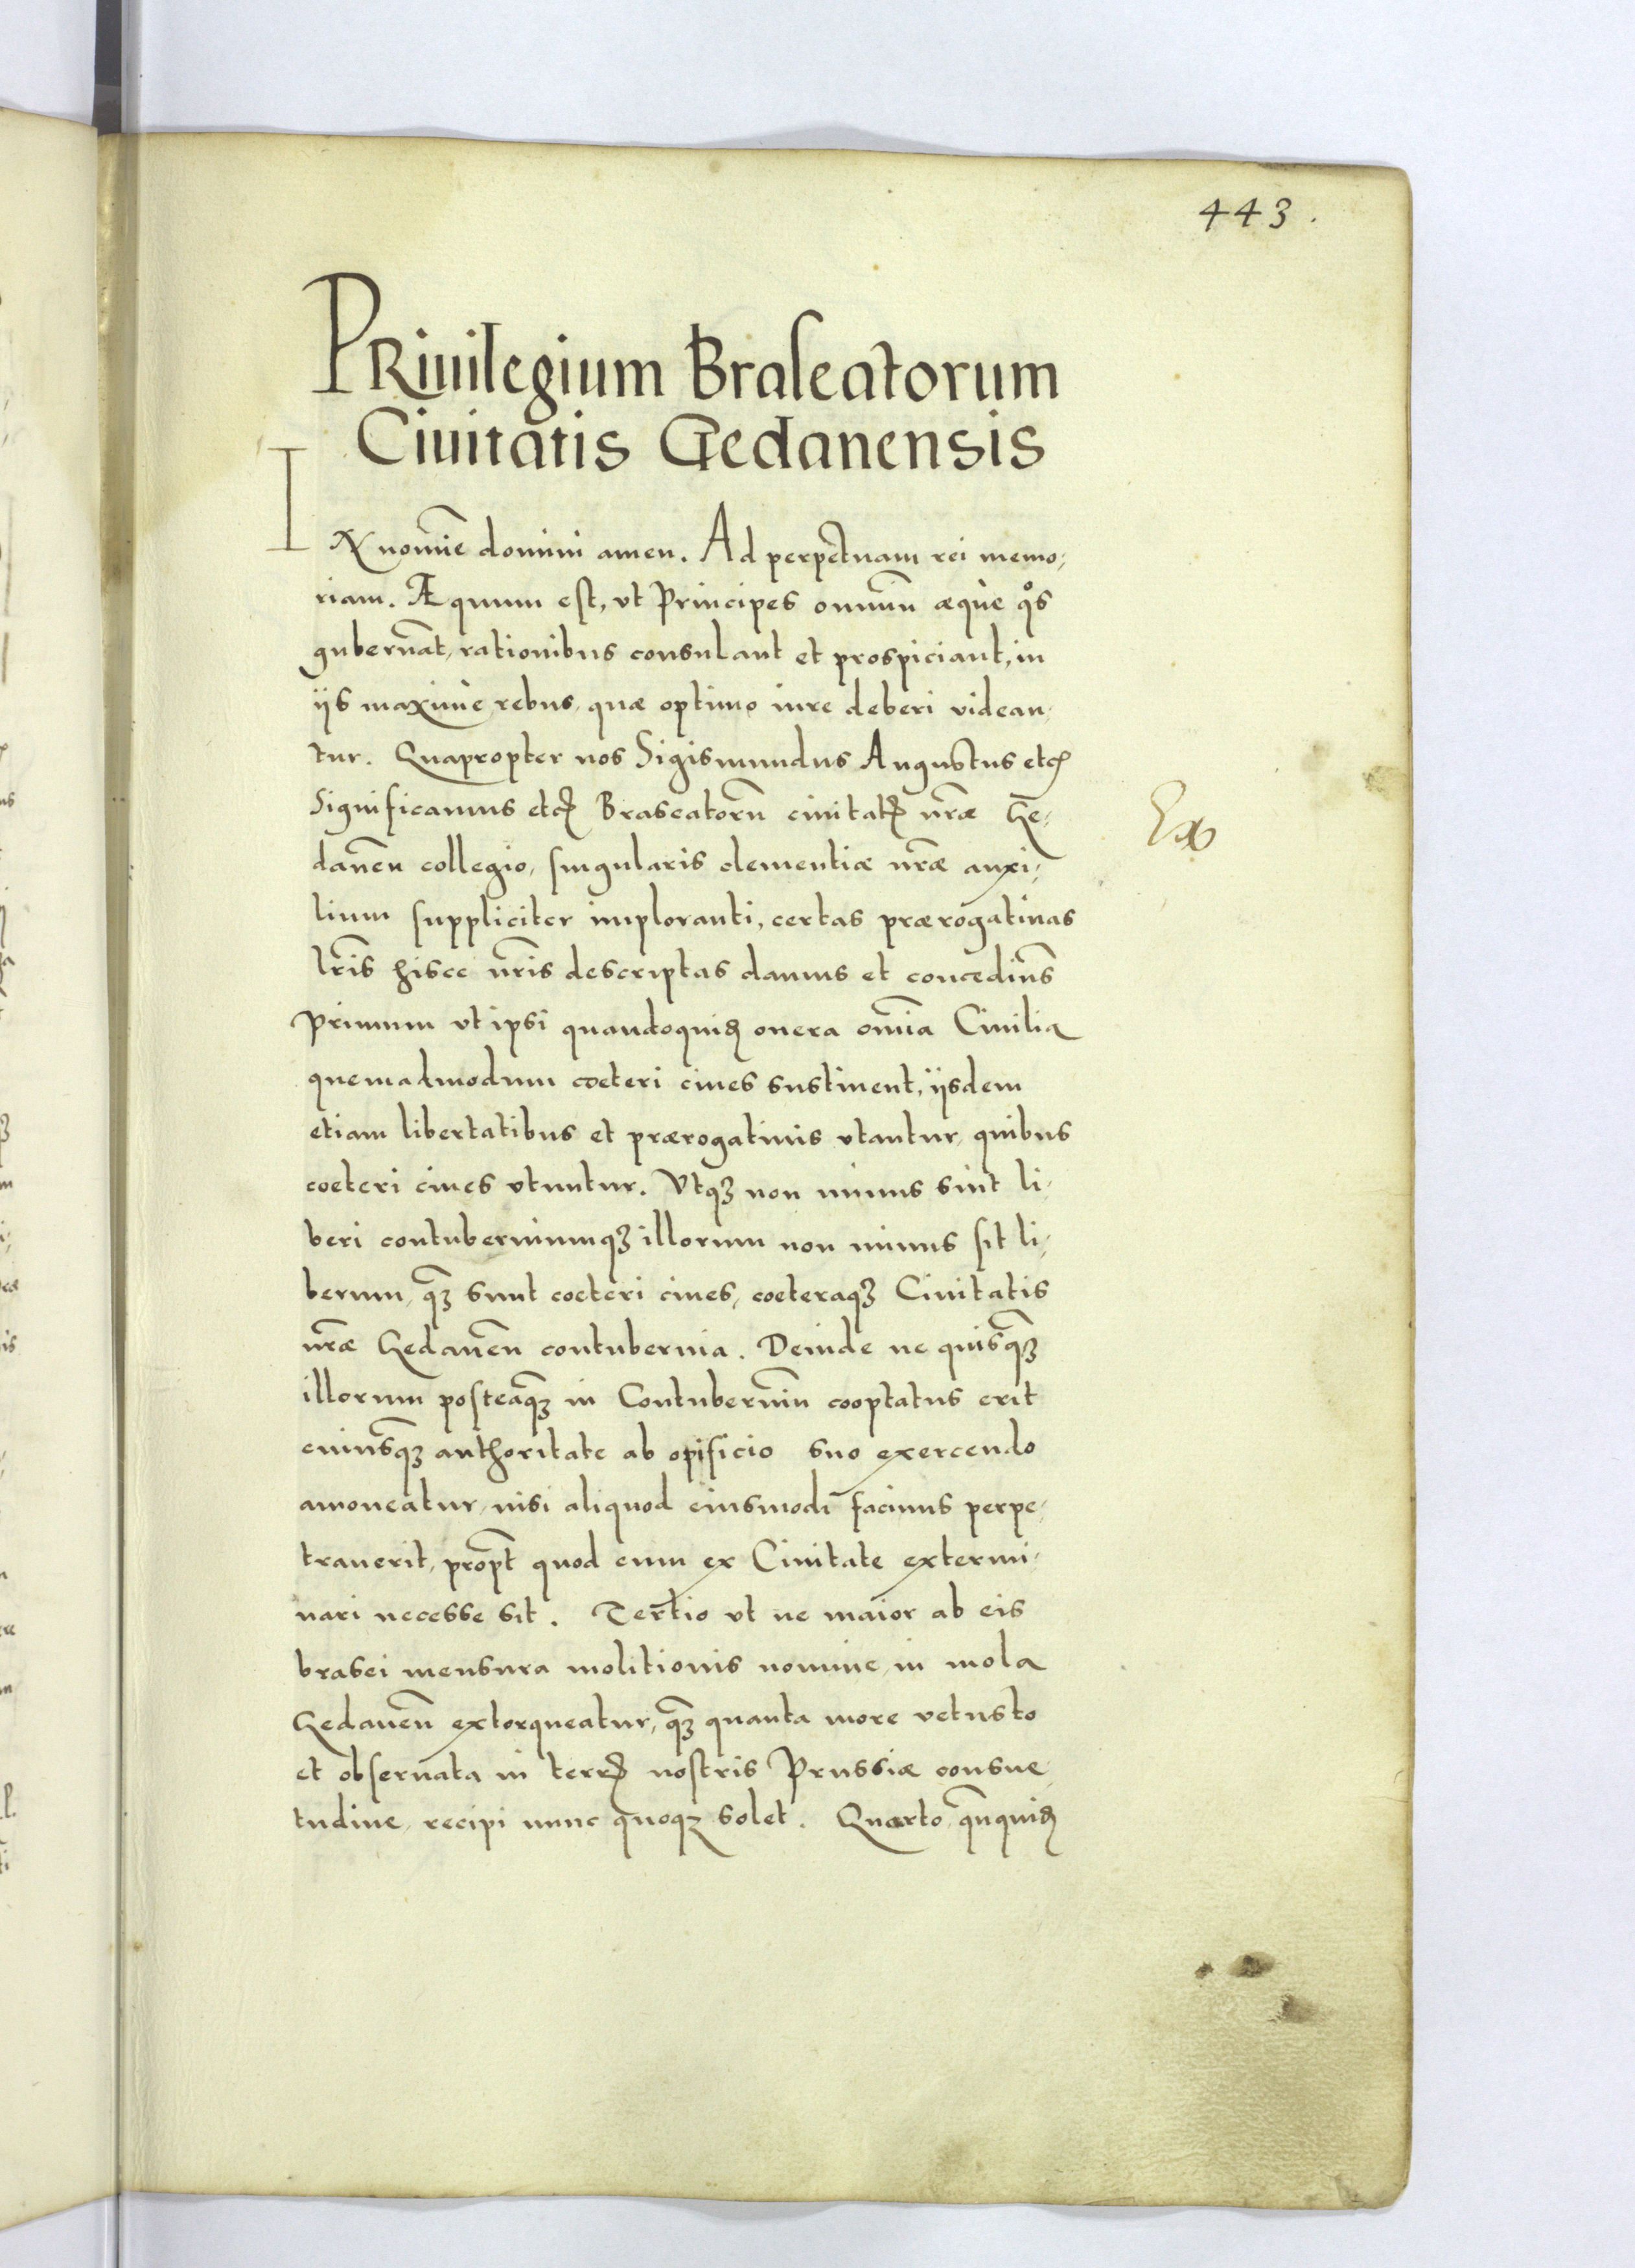 443.
PRiuilegium Braseatorum
Ciuitatis Gedanensis
IN nomīe domini amen. Ad perpetuam rei memo,
riam. Æquum est, vt Principes omniū æquè qͦs
gubernāt, rationibus consulant et prospiciant, in
ijs maximè rebus, quæ optimo iure deberi videan,
tur. Quapropter nos Sigismundus Augustus etcꝭ
Significamus etcꝭ Braseatorū ciuitatꝭ nr̄æ Ge,
danēn collegio, singularis clementiæ nr̄æ auxi,
lium suppliciter imploranti, certas prærogatiuas
lr̄is hisce nr̄is descriptas damus et concedim̄s
Primum vt ipsi quandoquiđ onera om̄ia Ciuilia
quemadmodum cœteri ciues sustinent, ijsdem
etiam libertatibus et prærogatiuis vtantur, quibus
cœteri ciues vtuntur. Vtqꝫ non minus sint li,
beri contuberniumqꝫ illorum non minus sit li,
berum, qꝫ̄ sunt cœteri ciues, cœteraqꝫ Ciuitatis
nr̄æ Gedanēn contubernia. Deinde ne quisqꝫ̄
illorum posteaqꝫ̄ in Contuberniū cooptatus erit
cuiusqꝫ̄ authoritate ab opificio suo exercendo
amoueatur, nisi aliquod eiusmodi facinus perpe,
trauerit, prop̄t quod eum ex Ciuitate extermi,
nari necesse sit. Tertio vt ne maior ab eis
brasei mensura molitionis nomine, in mola
Gedanēn extorqueatur, qꝫ̄ quanta more vetusto
et obseruata in terrꝭ nostris Prussiæ consue,
tudine, recipi nunc quoqꝫ solet. Quarto, qūquiđ
Ex